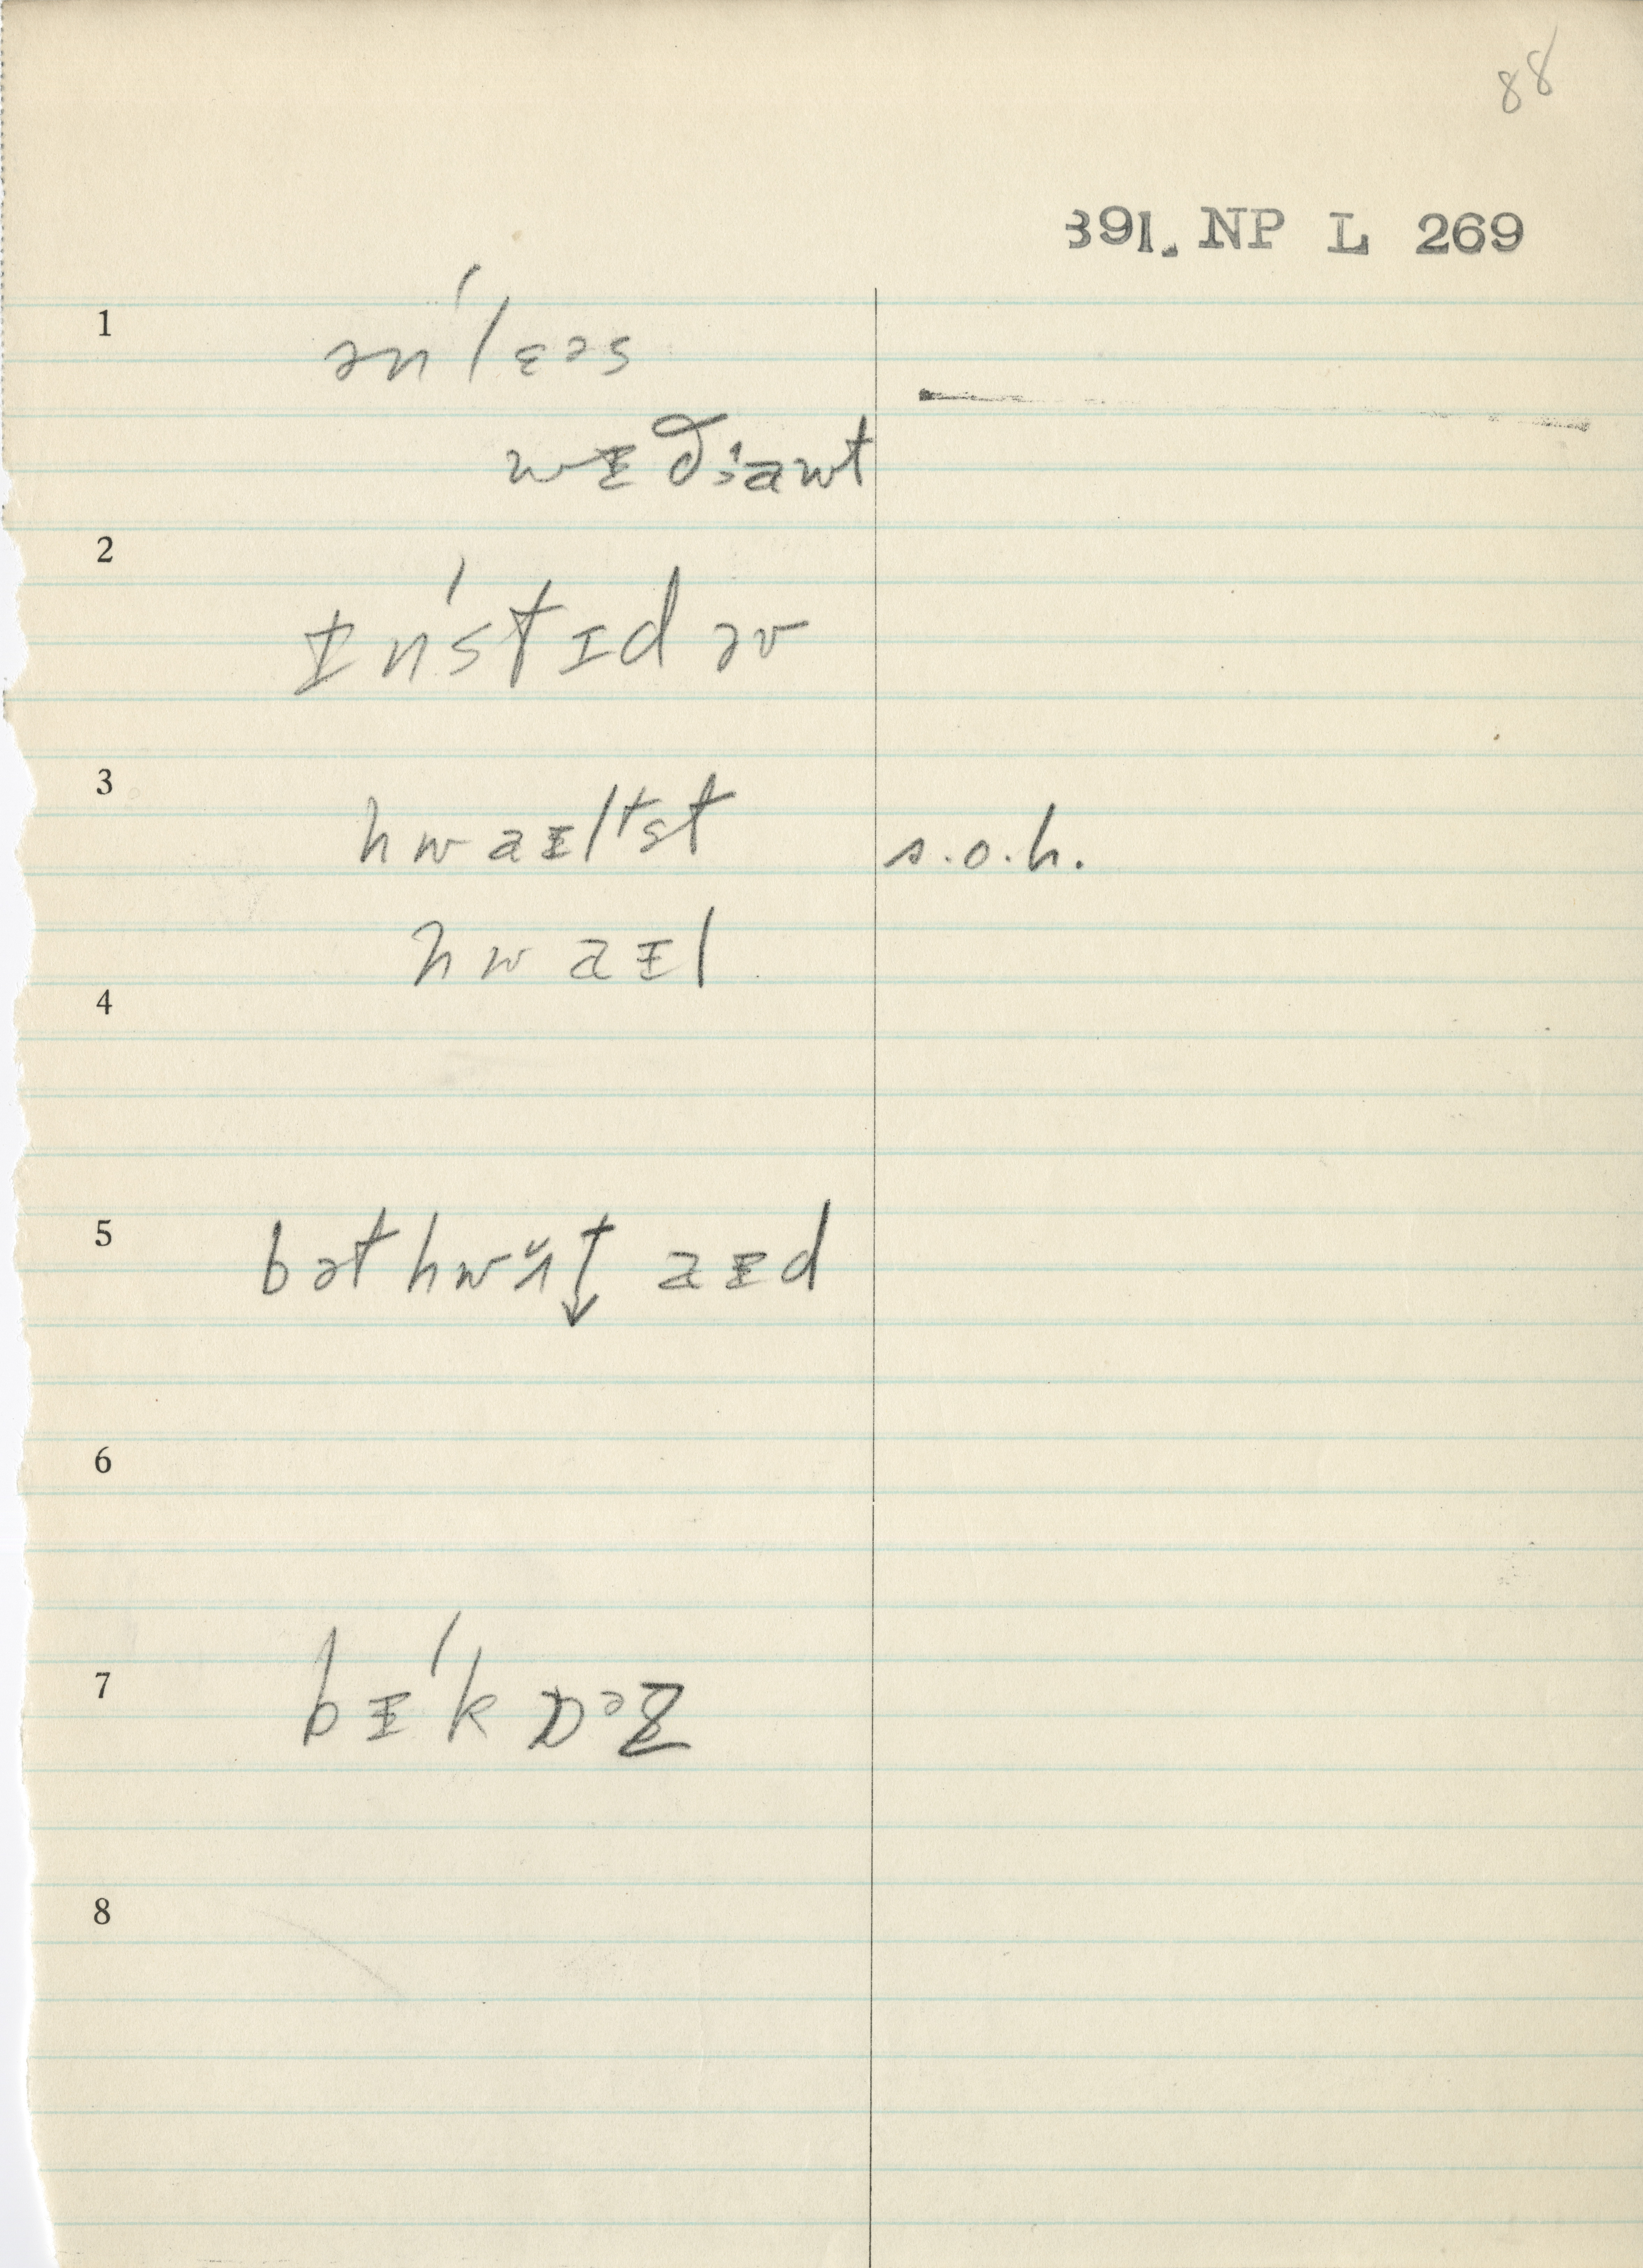 88
391. NP L 269
1 ənˈlɛəs
wᵻðᵊawt
2 ᵻnˈstɪd əv
3 hwaᵻltst s.o.h.
hwaᵻl
4
5 bət hwɑ̆t↓ aᵻd
6
7 bᵻˈkɒᵊz
8